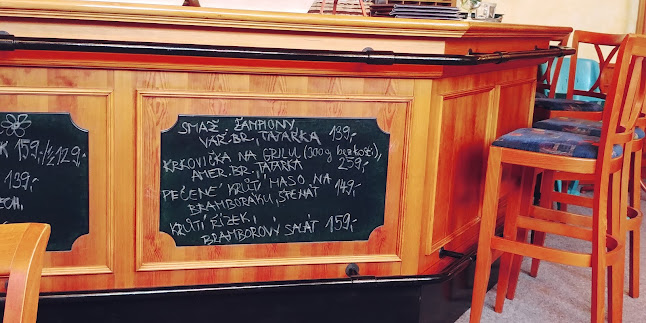 K 159,-/½129,-
139,-
ECH,
SMAŽ. ŽAMPIONY
VAŘ.BR., TATARKA 139,-
KRKOVIČKA NA GRILU (300g bez kosti),
AMER.BR., TATARKA 259,-
PEČENÉ KRŮTÍ MASO NA
BRAMBORÁKU, ŠPENÁT 149,-
KRŮTÍ ŘÍZEK,
BRAMBOROVÝ SALÁT 159,-